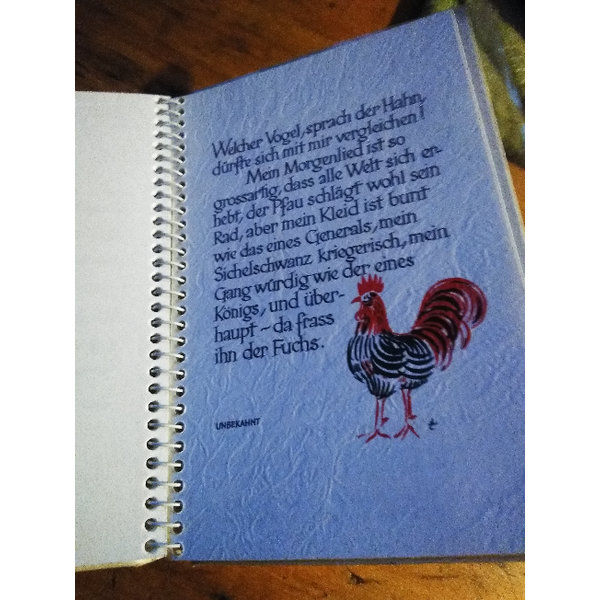 Welcher Vogel, sprach der Hahn,
dürfte sich mit mir vergleichen!
Mein Morgenlied ist so
grossartig, dass alle Welt sich er-
hebt, der Pfau schlägt wohl sein
Rad, aber mein Kleid ist bunt
wie das eines Generals, mein
Sichelschwanz kriegerisch, mein
Gang würdig wie der eines
Königs, und über-
haupt ~ da frass
ihn der Fuchs.
UNBEKAHNT